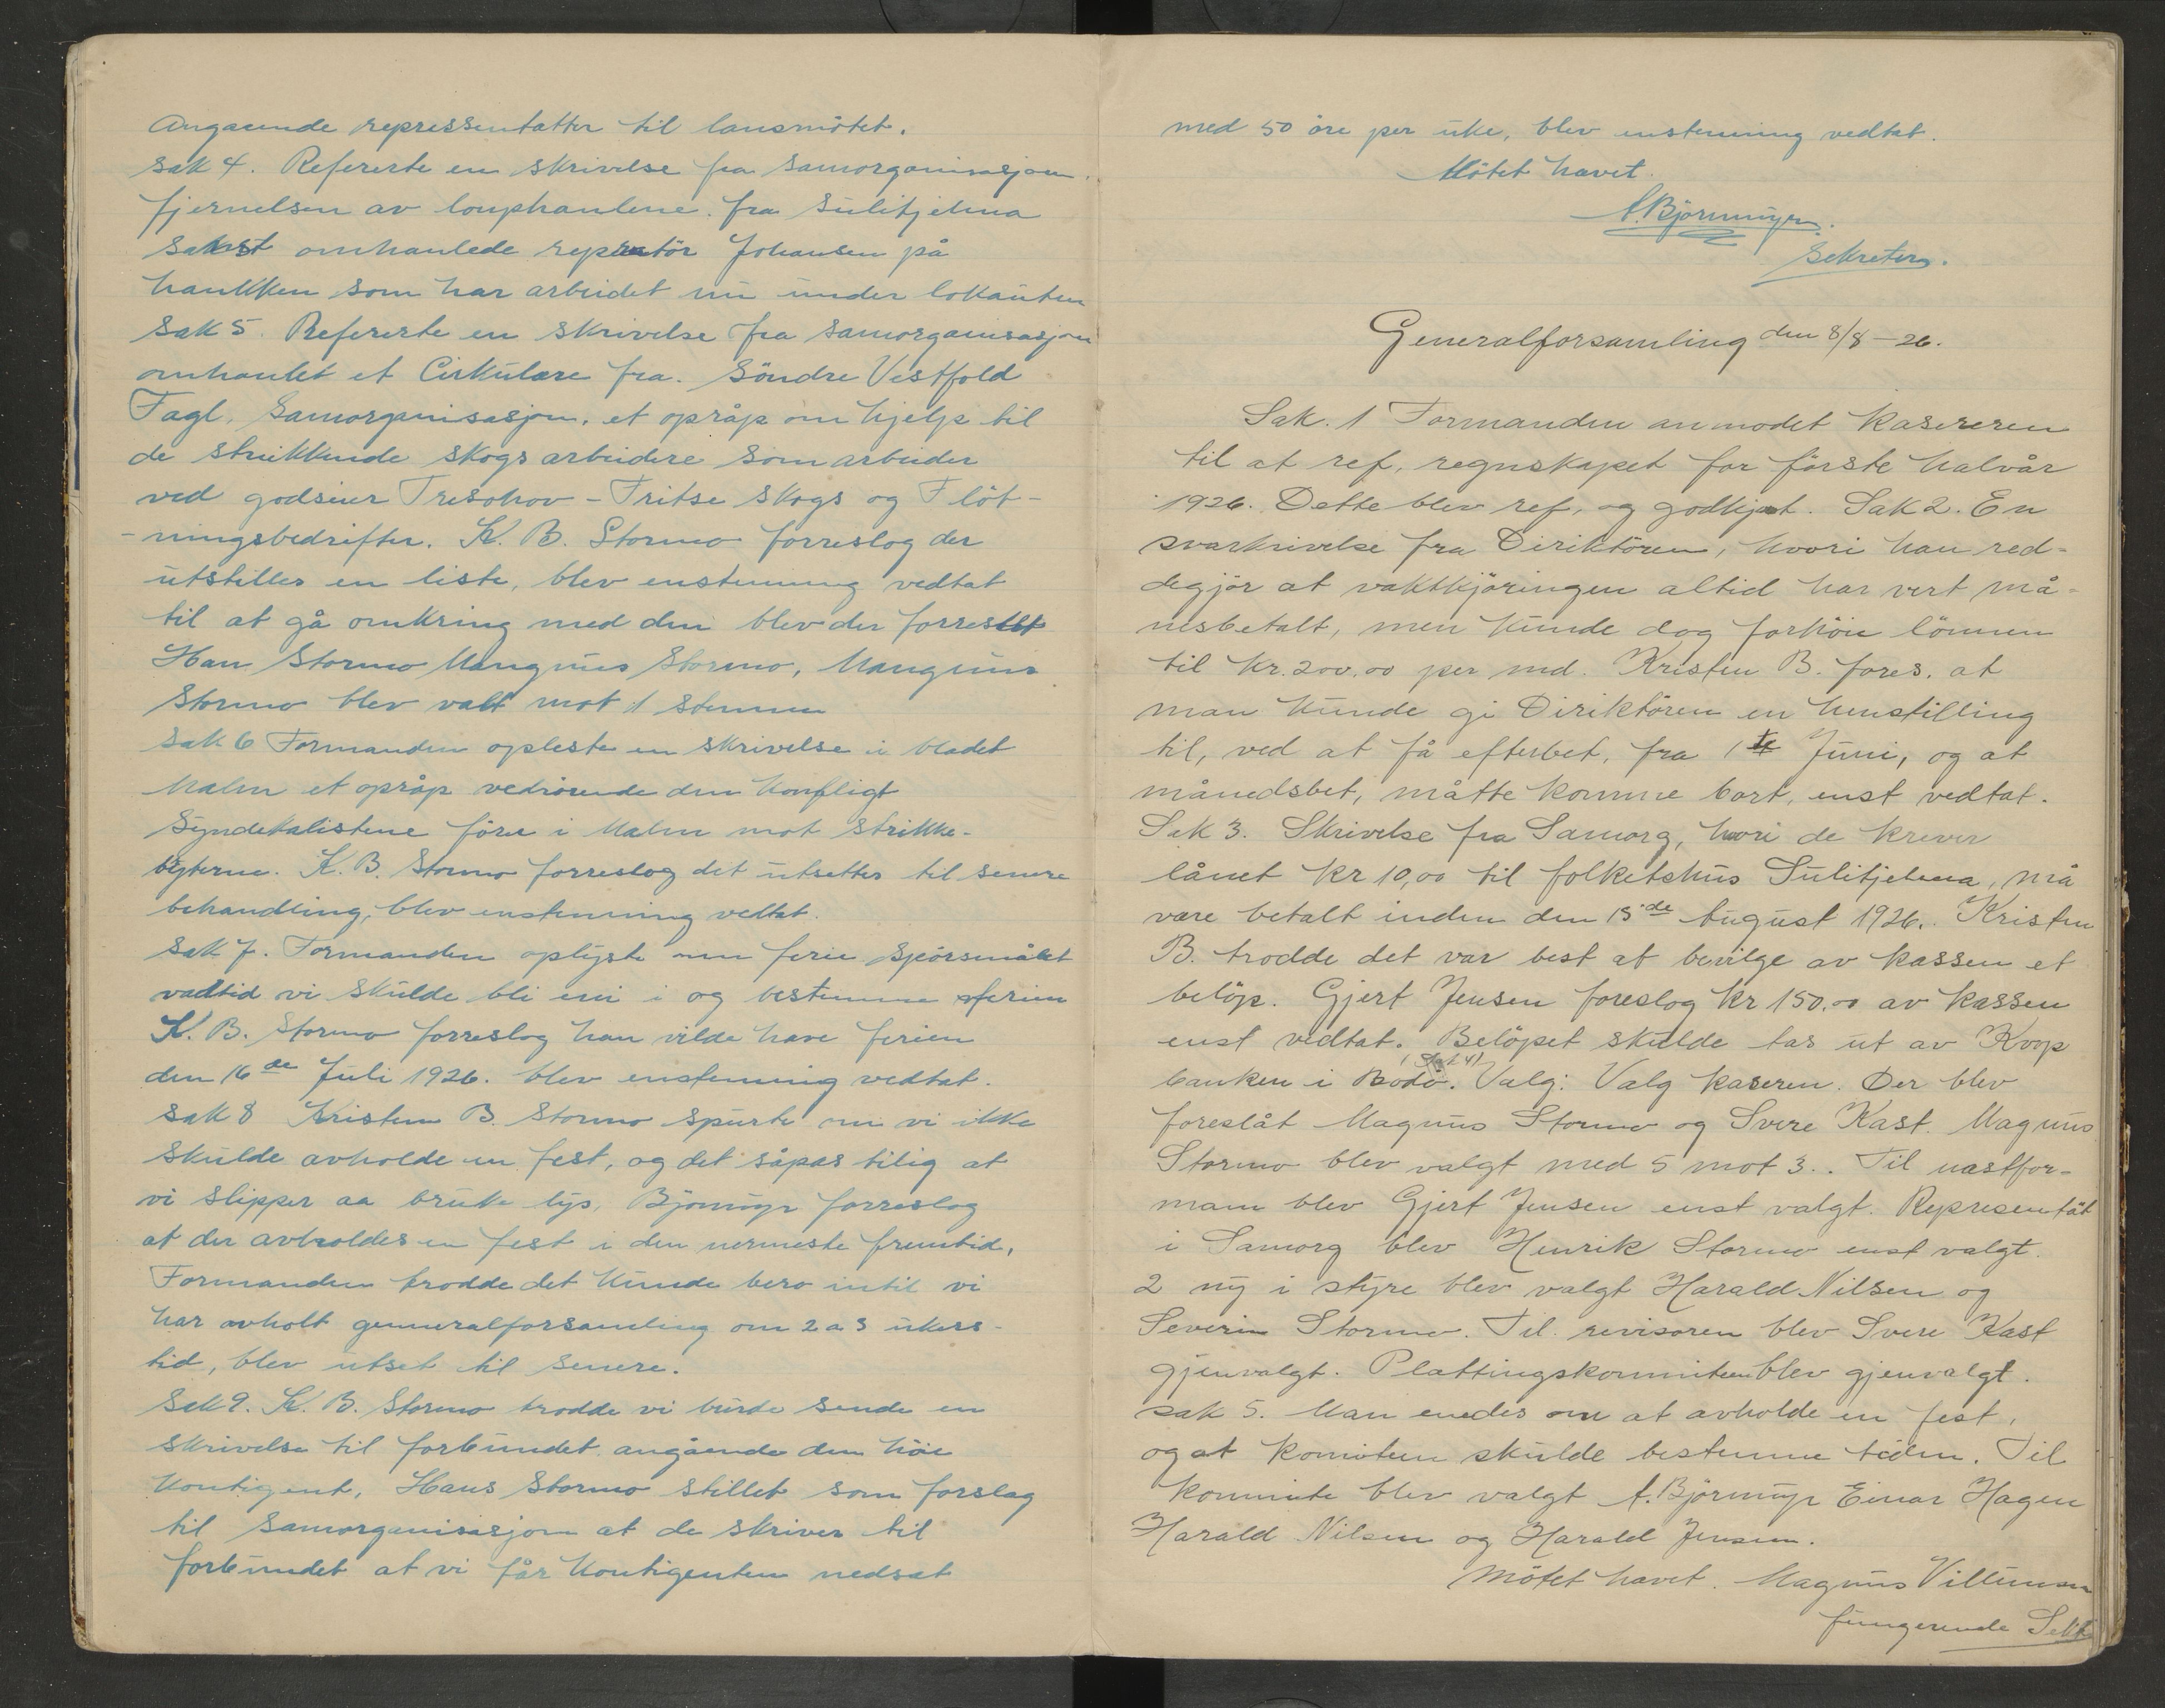 Angaaende repressentatter til lansmötet.
Sak 4. Refererte en skrivelse fra Samorganisasjon.
fjernelsen av louphantene. fra Sulitjelma
Sakst omhanlede repratör Johansen på
hankken som har arbeidet nu under lokauten
Sak 5. Refererte en skrivelse fra Samorganisasjon
omhantet et Cirkulære fra. Söndre Vestfold
Fagl. Samorganisasjon. et opråp om hjelp til
de streikkende skogsarbeidere som arbeider
ved godseier Treschov - Fritse Skogs og Flöt-
-ningsbedrifter. K. B. Stormo forreslog der
utstilles en liste, blev enstemmig vedtat
til at gå omkring med den blev der forreslåt
Han Stormo Mangnus Stormo, Mangnus
Stormo blev valt mot 1 stemme
Sak 6 Formanden opleste en skrivelse i bladet
Malm et opråp vedrörende den konfligt
Syndekalistene förer i Malm mot Strikke-
byterne. K. B. Stormo forreslog det utsettes til senere
behandling, blev enstemmig vedtat.
Sak 7. Formanden oplyste om ferie Spörsmålet
vadtid vi skulde bli eni i og bestemme ferien
K. B. Stormo forreslog han vilde have ferien
den 16de Juli 1926. blev enstemmig vedtat.
Sak 8 Kristen B. Stormo spurte om vi ikke
Skulde avholde en fest, og det såpas tilig at
vi slipper aa bruke lys, Björnmyr forreslog
at der avholdes en fest i den nermeste fremtid,
Formanden trodde det kunde bero intil vi
har avholt genneralforsamling om 2 a 3 ukers-
tid, blev utset til senere.
Sak 9. K. B. Stormo trodde vi burde sende en
skrivelse til forbundet angående den höie
Kontigent, Hans Stormo stillet som forslag
til Samorganisasjon at de skriver til
forbundet at vi får Kontigenten nedsat
med 50 öre per uke, blev enstemmig vedtat.
Mötet hævet.
A. Björnmyr.
Sekretær.
Generalforsamling den 8/8-26.
Sak. 1 Formanden anmodet Kasereren
til at ref. regnskapet for förste halvår
1926. Dette blev ref. og godkjent. Sak 2. En
svarkrivelse fra Diriktören, hvori han red-
degjör at vaktkjöringen altid har vert må-
nesbetalt, men kunde dog forhöie lönnen
til Kr. 200.00 per md. Kristen B. fores. at
man kunde gi Diriktören en henstilling
til, ved at få efterbet. fra 1ste Juni, og at
månedsbet, måtte komme bort, enst vedtat.
Sak 3. Skrivelse fra Samorg, hvori de krever
lånet Kr 10,00 til folketshus Sulitjelma, må
være betalt inden den 15de August 1926. Kristen
B. trodde det var best at bevilge av kassen et
belöp. Gjert Jensen foreslog Kr 150.00 av kassen
enst vedtat. Belöpet skulde tas ut av Koop
(Sak 4)
banken i Bodö. Valg: Valg kaseren. Der blev
foreslåt Magnus Stormo og Svere Kast. Magnus
Stormo blev valgt med 5 mot 3.. Til nastfor-
mam blev Gjert Jensen enst valgt. Representät
i Samorg blev Henrik Stormo enst valgt.
2 ny i styre blev valgt Harald Nilsen og
Severin Stormo. Til revisoren blev Svere Kast
gjenvalgt. Plattingskommiteen blev gjenvalgt.
sak 5. Man enedes om at avholde en fest,
og at komiteen skulde bestemme tiden. Til
Kommite blev valgt A. Björnmyr Einar Hagen
Harald Nilsen og Harald Jensen.
Mötet hævet. Magnus Villumsen
fungerende Sekt